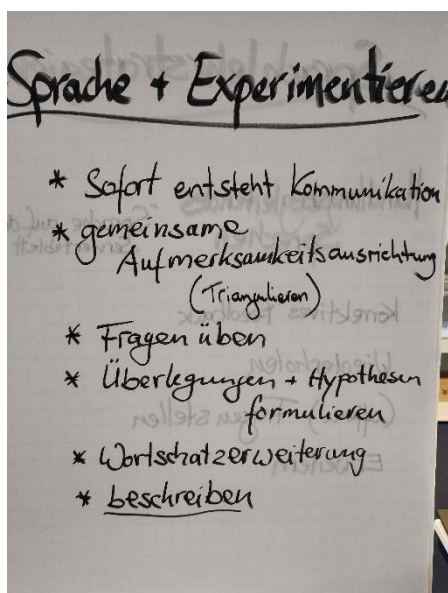 Sprache + Experimentieren
* Sofort entsteht Kommunikation
* gemeinsame
Aufmerksamkeitsausrichtung
(Triangulieren)
* Fragen üben
* Überlegungen + Hypothesen
formulieren
* Wortschatzerweiterung
* beschreiben